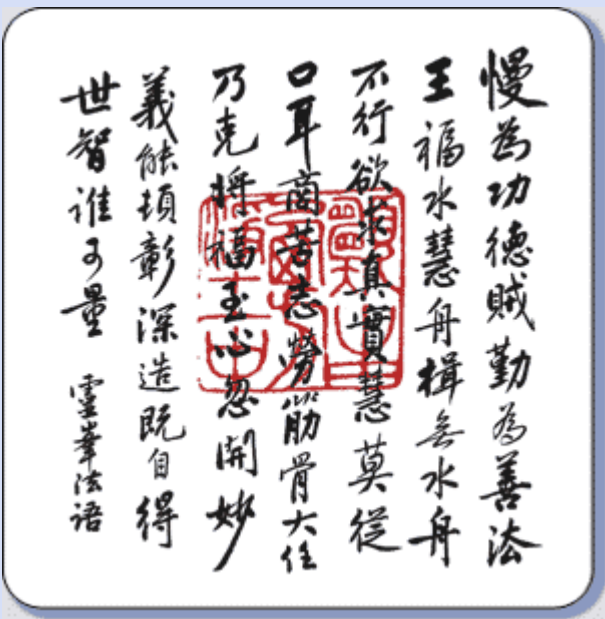 慢為功德賊勤為善法
王福水慧舟楫無水舟
不行欲求真實慧莫從
口耳商苦志勞筋骨大任
乃克将福至心忽開妙
義能頓彰深造既自得
世智誰可量 靈峯法語